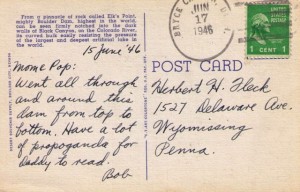 From a pinnacle of rock called Elk's Point,
mighty Boulder Dam, highest in the world,
can be seen firmly notched into the dark
walls of Black Canyon, on the Colorado River,
its curved bulk easily resisting the pressure
of the largest and deepest artificial lake in
the world.
15 June '46
Mom & Pop:
Went all through
and around this
dam from top to
bottom. Have a lot
of propaganda for
Daddy to read.
Bob
JUN
17
1946
1 CENT 1
POST CARD
Herbert H. Fleck
1527 Delaware Ave.
Wyomissing
Penna.